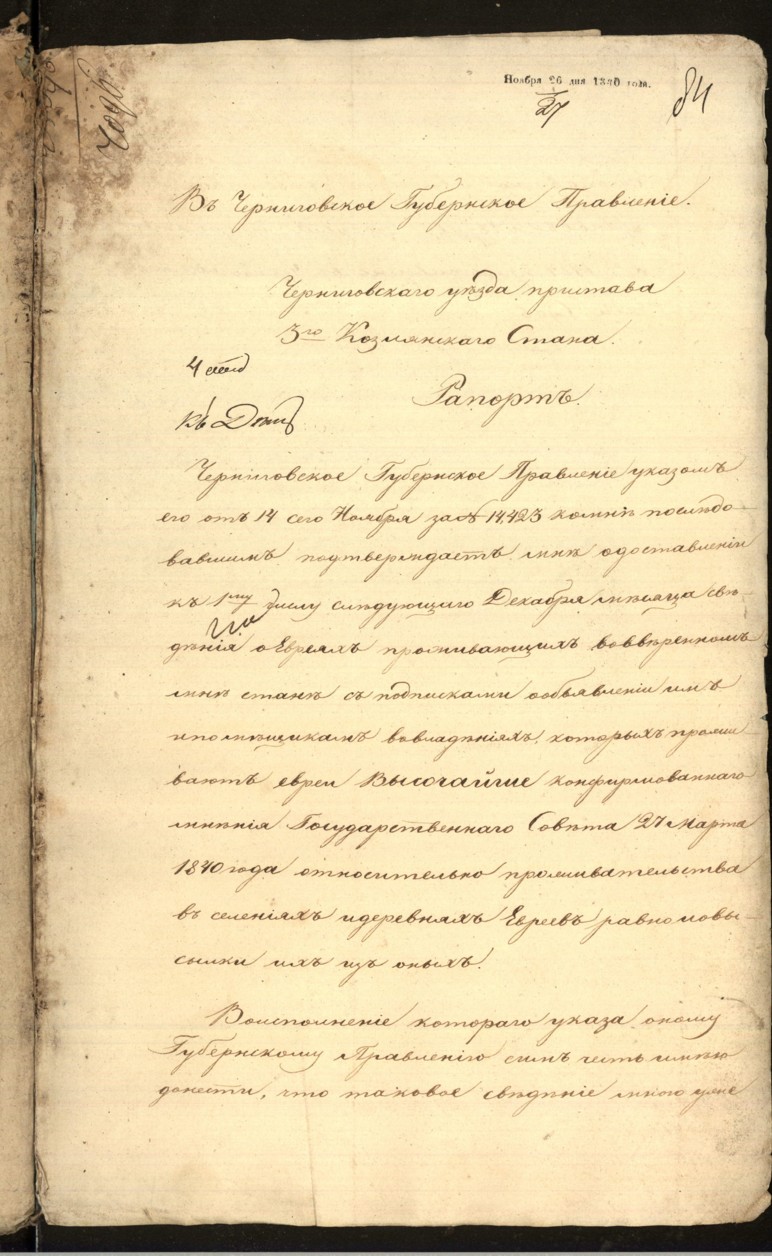 Ноября 26 дня 1840 года.
27
84
Въ Черниговское Губернское Правленіе.
Черниговскаго уѣзда пристава
3го Козлянскаго Стана.
4 стол
Рапортъ.
къ
Черниговское Губернское Правленіе указомъ
его отъ 14 сего Ноября за № 14,423 комнѣ послѣдо-
вавшимъ подтверждаетъ мнѣ одоставленіи
къ 1му числу слѣдующаго Декабря мѣсяца свѣ-
дѣнія оЕвреяхъ проживающихъ вовввѣренномъ
мнѣ станѣ съ подписками ообъявленіи имъ
ипомѣщикамъ вовладѣніяхъ которыхъ прожи-
ваютъ евреи Высочайше конфирмованнаго
мнѣнія Государственнаго Совѣта 27 Марта
1840 года относительно проживательства
въ селеніяхъ идеревняхъ Евреевъ равно иовы-
сылки ихъ изъ оныхъ.
Воисполненіе котораго указа оному
Губернскому Правленію симъ честь имѣю
донести, что таковое свѣденіе мною уже